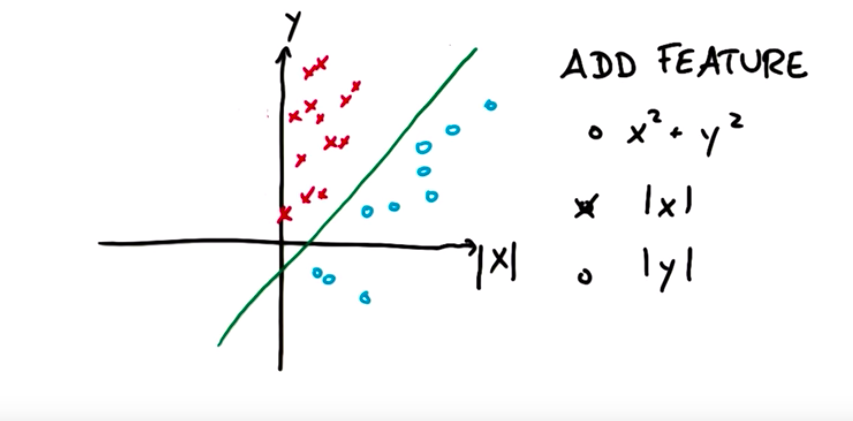 Y
|X|
ADD FEATURE
x² + y²
|x|
|y|